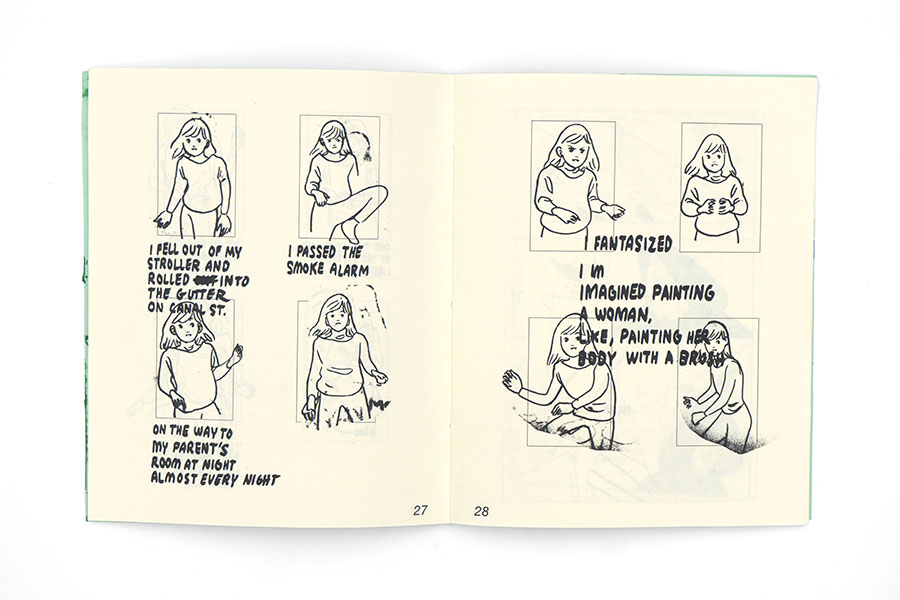 I FELL OUT OF MY
STROLLER AND
ROLLED INTO
THE GUTTER
ON CANAL ST.
I PASSED THE
SMOKE ALARM
ON THE WAY TO
MY PARENT'S
ROOM AT NIGHT
ALMOST EVERY NIGHT
27
I FANTASIZED
I IM
IMAGINED PAINTING
A WOMAN,
LIKE, PAINTING HER
BODY WITH A BRUSH
28